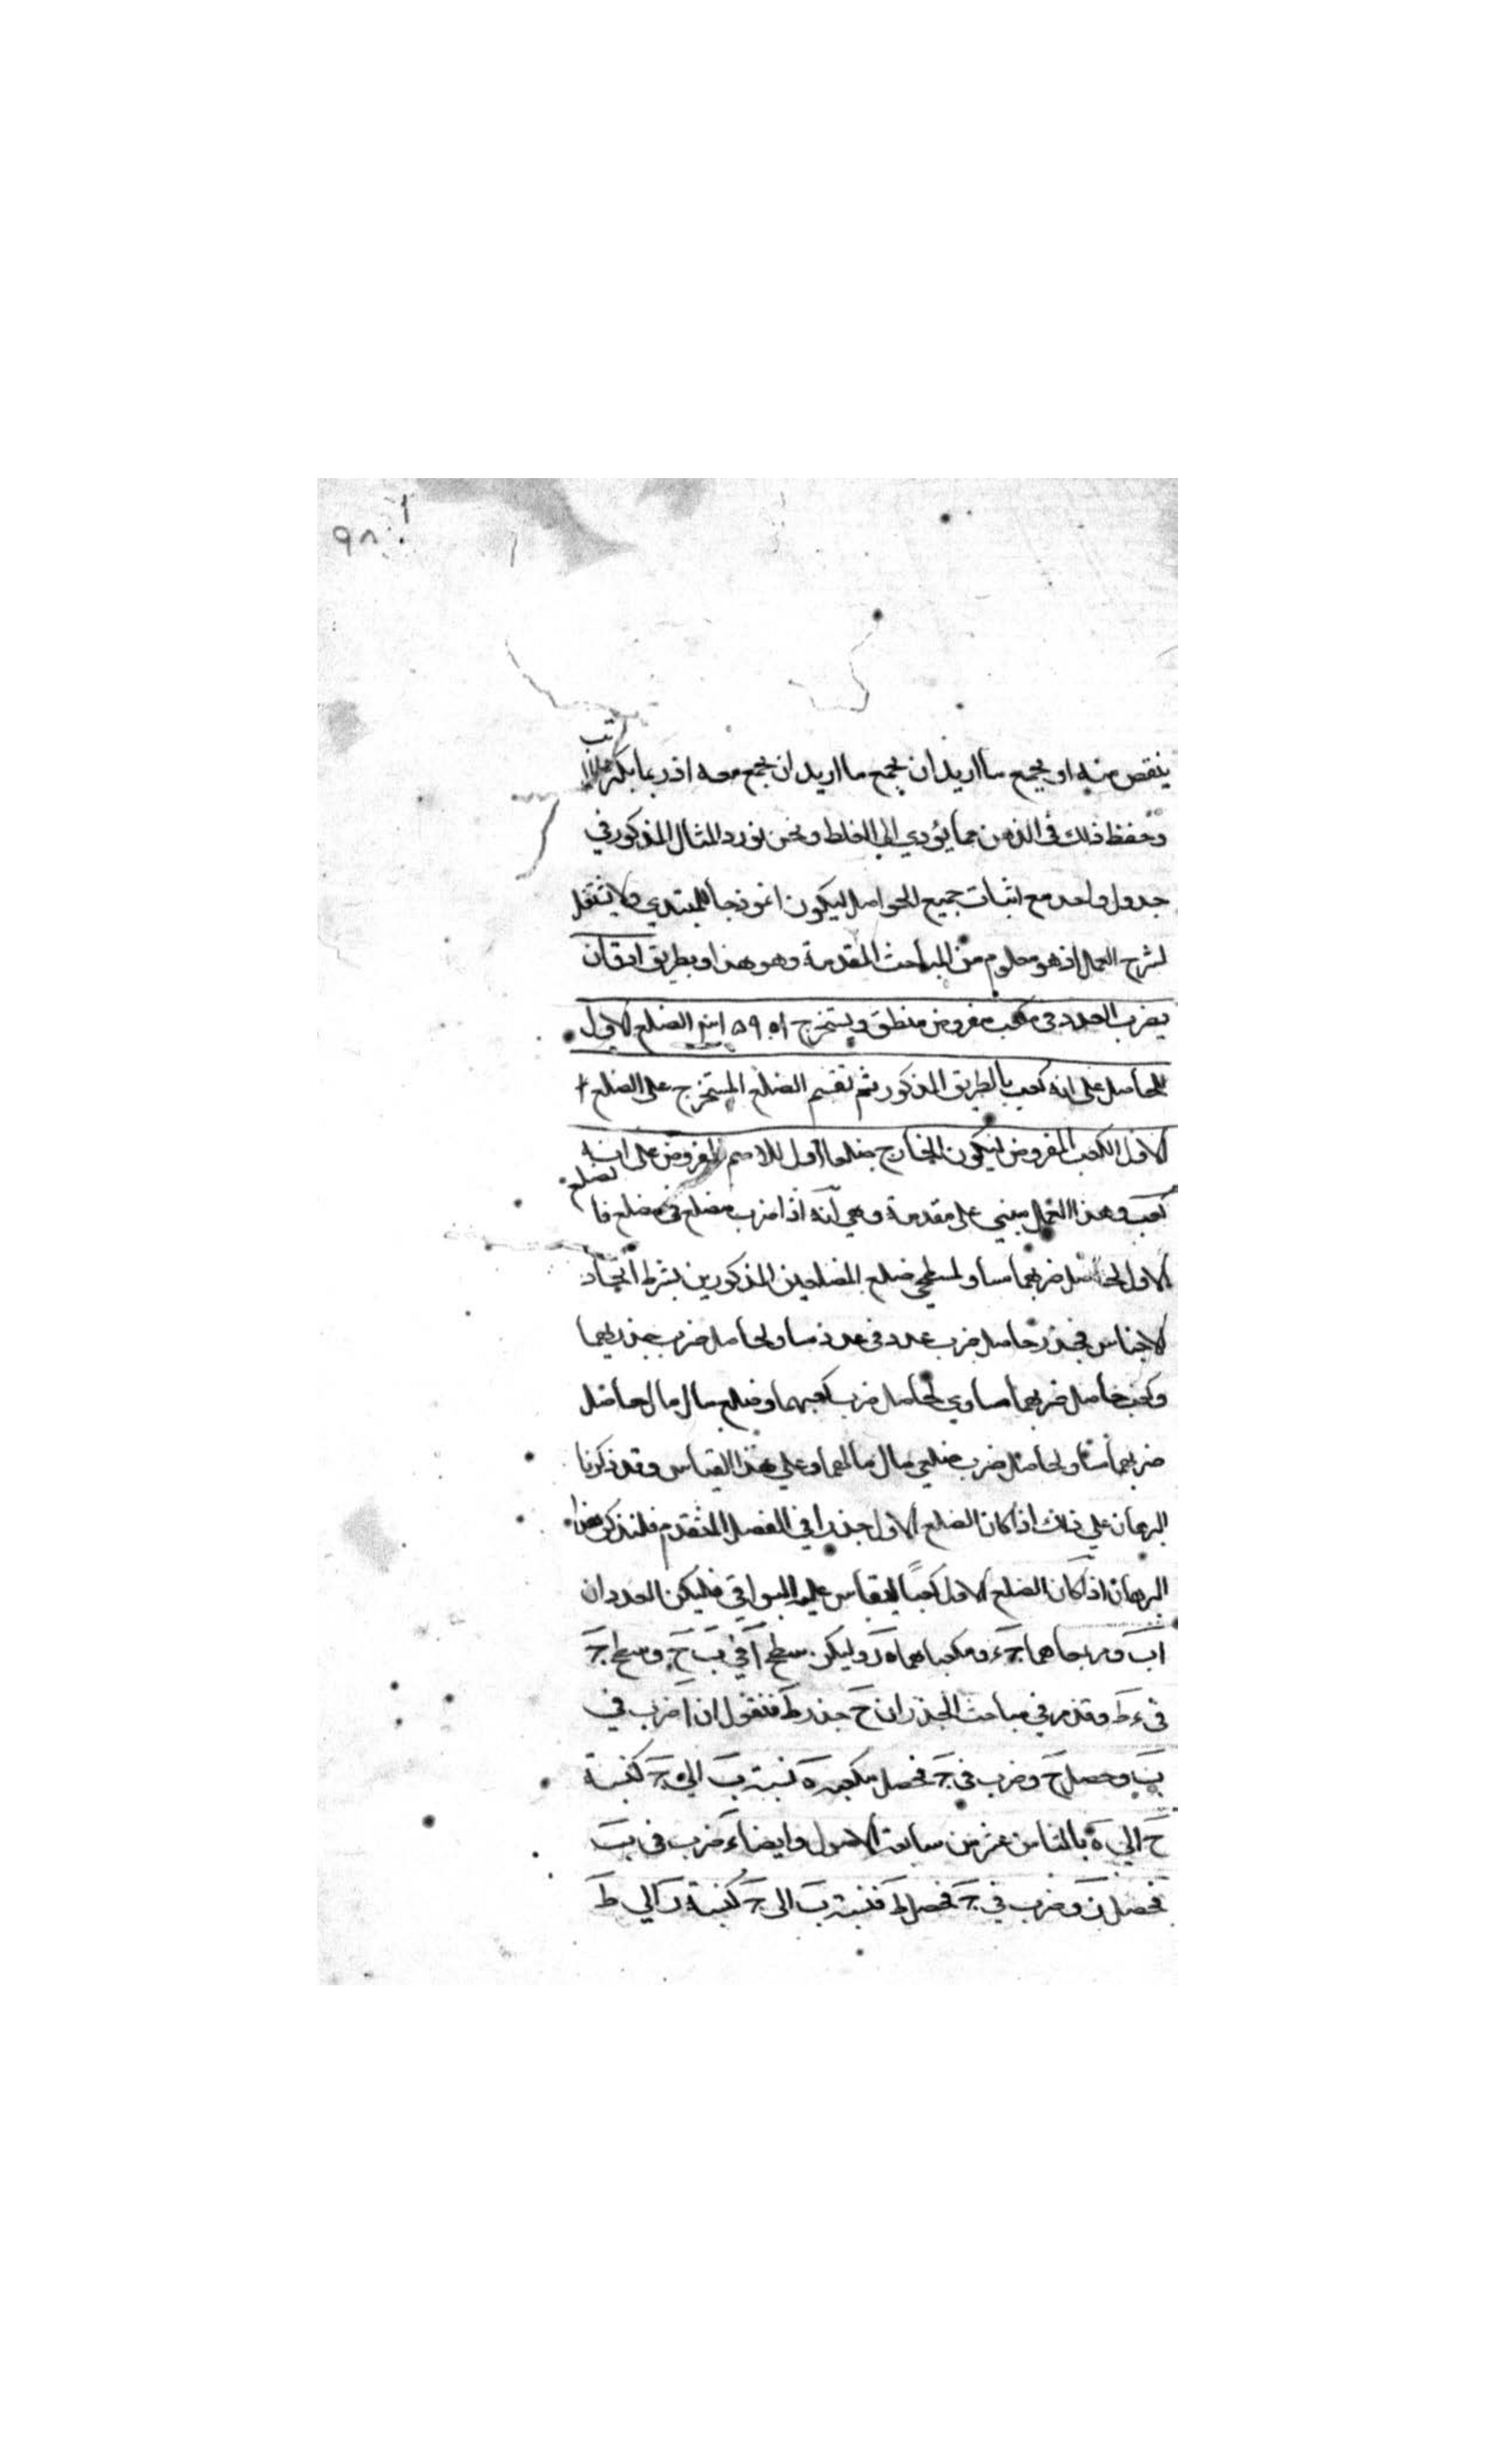 ٩٨
ينقص منه او يجمع ما اريد ان يجمع ما اريد ان يجمع معه اذ ربما يكثر
تب
وحفظ ذلك في الذهن مما يؤدي الى الغلط ونحن نورد المثال المذكور في
جدول واحد مع اثبات جميع الحواصل ليكون انموذجا للمبتدي ولا نشتغل
لشرح العمل اذ هو معلوم من المباحث المقدمة وهو هذا وبطريق اخر ان
يضرب العدد في مكعب مفروض منطق ويستخرج الضلع الاول
للحاصل على انه كعب بالطريق المذكور ثم نقسم الضلع المستخرج على الضلع
الاول الكعب المفروض ليكون الخارج ضلعا اول للاصم المفروض على انه
كعب وهذا العمل مبني على مقدمة وهي انه اذا ضرب مضلع في مضلع فا
لضلع
الاول لحاصل ضربهما مساو لمسطحي ضلع المضلعين المذكورين بشرط اتحاد
الاجناس فجذر حاصل ضرب عدد في عدد مساو لحاصل ضرب جذريهما
وكعب حاصل ضربهما مساوي لحاصل ضرب كعبيهما وضلع مال مال حاصل
ضربهما مساو لحاصل ضرب ضلعي مال مالهما وعلى هذا القياس وقد ذكرنا
البرهان علي ذلك اذا كان الضلع الاول جذرا في الفصل المتقدم فلنذكر هذا
البرهان اذا كان الضلع الاول كعبا ليقاس عليه البواقي فليكن العددان
اب ومربعاهما ج ء ومكعباهما ه ر وليكن سطح ا في ب ح وسطح ج
في ء ط وقد مر في مباحث الجذر ان ح جذر ط فنقول ان ا ضرب في
ب وحصل ح وضرب في ج فحصل مكعبه ه نسبة ب الي ج كنسبة
ح الي ه بالثامن عشر من سابعة الاصول وايضا ء ضرب في ب
فحصل ر وضرب في ج فحصل ط فنسبة ب الى ج كنسبة ر الي ط